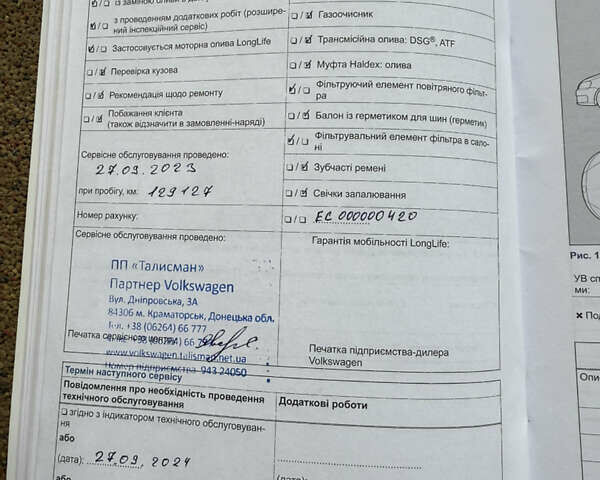 із заміною оливи в д
з проведенням додаткових робіт (розшире-
ний інспекційний сервіс)
Застосовується моторна олива LongLife
Перевірка кузова
Рекомендація щодо ремонту
Побажання клієнта
(також відзначити в замовленні-наряді)
Газоочисник
Трансмісійна олива: DSG®, ATF
Муфта Haldex: олива
Фільтруючий елемент повітряного фільт-
ра
Балон із герметиком для шин (герметик)
Фільтрувальний елемент фільтра в сало-
ні
Зубчасті ремені
Свічки запалювання
Сервісне обслуговування проведено:
27.09.2023
при пробігу, км: 129127
Номер рахунку:
ЕС 000000420
Сервісне обслуговування проведено:
Гарантія мобільності LongLife:
ПП «Талисман»
Партнер Volkswagen
Вул. Дніпровська, 3А
84306 м. Краматорськ, Донецька обл.
Тел. +38 (06264) 66 777
Печатка сервісного центру
www.volkswagen.talisman.net.ua
Номер підприємства 943 24050
Печатка підприємства-дилера
Volkswagen
Термін наступного сервісу
Повідомлення про необхідність проведення
технічного обслуговування
Додаткові роботи
згідно з індикатором технічного обслуговуван-
ня
або
(дата): 27.09.2024
(дата):
або
Рис. 1
УВ сп
ми:
× По
Опи